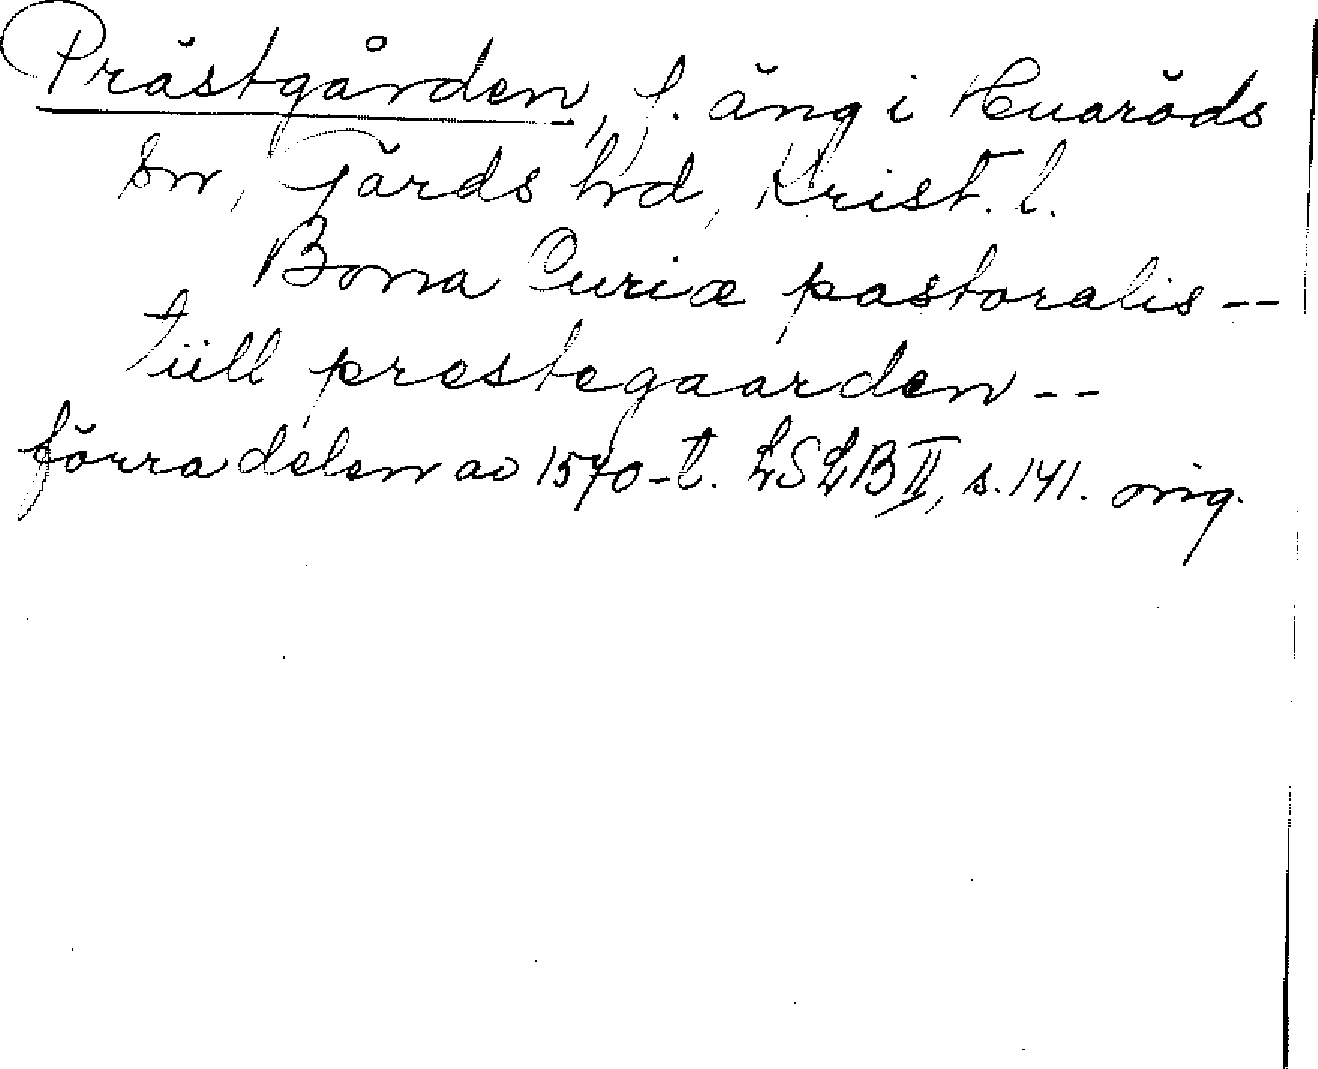 Prästgården, f. äng i Huaröds
sn, Gärds hd, Krist. l.
Bona Curiæ pastoralis --
tiill prestegaarden --
förra delen av 1570-t. LSLB II, s. 141. orig.